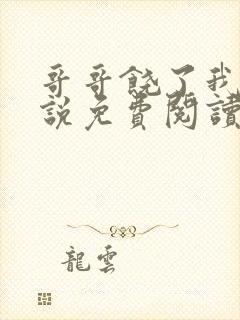 哥哥饶了我
說免費閱讀
龍雲